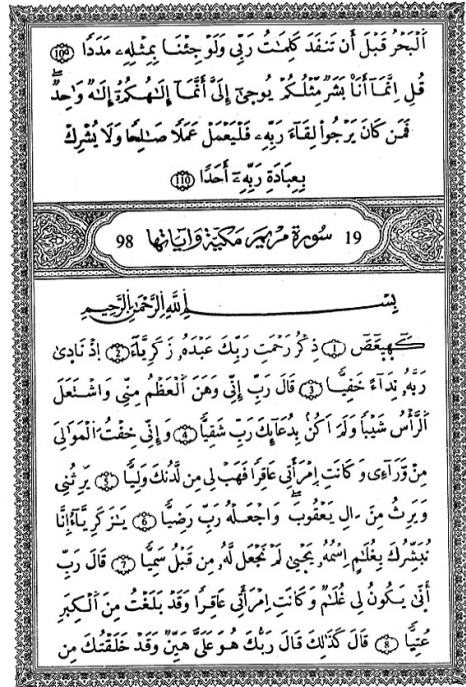 اَلْبَحْرُ قَبْلَ أَن تَنفَدَ كَلِمَٰتُ رَبِّي وَلَوْ جِئْنَا بِمِثْلِهِۦ مَدَدًا 109
قُلِ اِنَّمَآ أَنَا۠ بَشَرٌ مِّثْلُكُمْ يُوحَىٰٓ إِلَيَّ أَنَّمَآ إِلَٰهُكُمُۥٓ إِلَٰهٌ وَٰحِدٌ
فَمَن كَانَ يَرْجُواْ لِقَآءَ رَبِّهِۦ فَلْيَعْمَلْ عَمَلًا صَٰلِحًا وَلَا يُشْرِكْ
بِعِبَادَةِ رَبِّهِۦٓ أَحَدًا 110
19 سُورَة مَرْيَم مَكِيَّة وَءَايَاتهَا 98
بِسْمِ اِللَّهِ اِلرَّحْمَٰنِ اِلرَّحِيمِ
كَٓهَيَعَٓصَٓ 1 ذِكْرُ رَحْمَتِ رَبِّكَ عَبْدَهُۥ زَكَرِيَّآءَ 2 اِذْ نَادَىٰ
رَبَّهُۥ نِدَآءً خَفِيًّا 3 قَالَ رَبِّ إِنِّي وَهَنَ اَلْعَظْمُ مِنِّي وَاشْتَعَلَ
اَلرَّأْسُ شَيْبًا وَلَمَ اَكُنۢ بِدُعَآئِكَ رَبِّ شَقِيًّا 4 وَإِنِّي خِفْتُ اُلْمَوَٰلِيَ
مِنْ وَّرَآءِي وَكَانَتِ اِمْرَأَتِي عَاقِرًا فَهَبْ لِي مِن لَّدُنكَ وَلِيًّا 5 يَرِثُنِي
وَيَرِثُ مِنَ اٰلِ يَعْقُوبَ وَاجْعَلْهُ رَبِّ رَضِيًّا 6 يَٰزَكَرِيَّآءُ اِنَّا
نُبَشِّرُكَ بِغُلَٰمٍ اِسْمُهُۥ يَحْيَىٰ لَمْ نَجْعَل لَّهُۥ مِن قَبْلُ سَمِيًّا 7 قَالَ رَبِّ
أَنَّىٰ يَكُونُ لِي غُلَٰمٌ وَكَانَتِ اِمْرَأَتِي عَاقِرًا وَقَدْ بَلَغْتُ مِنَ اَلْكِبَرِ
عُتِيًّا 8 قَالَ كَذَٰلِكَ قَالَ رَبُّكَ هُوَ عَلَيَّ هَيِّنٌ وَقَدْ خَلَقْتُكَ مِن